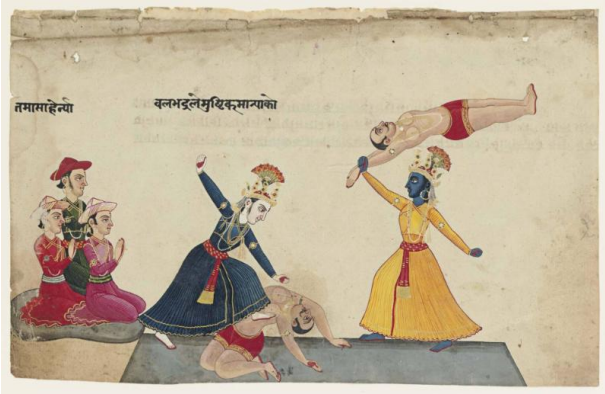 तमासाहेन्यो वलभद्रलेमुष्टिकमान्याको